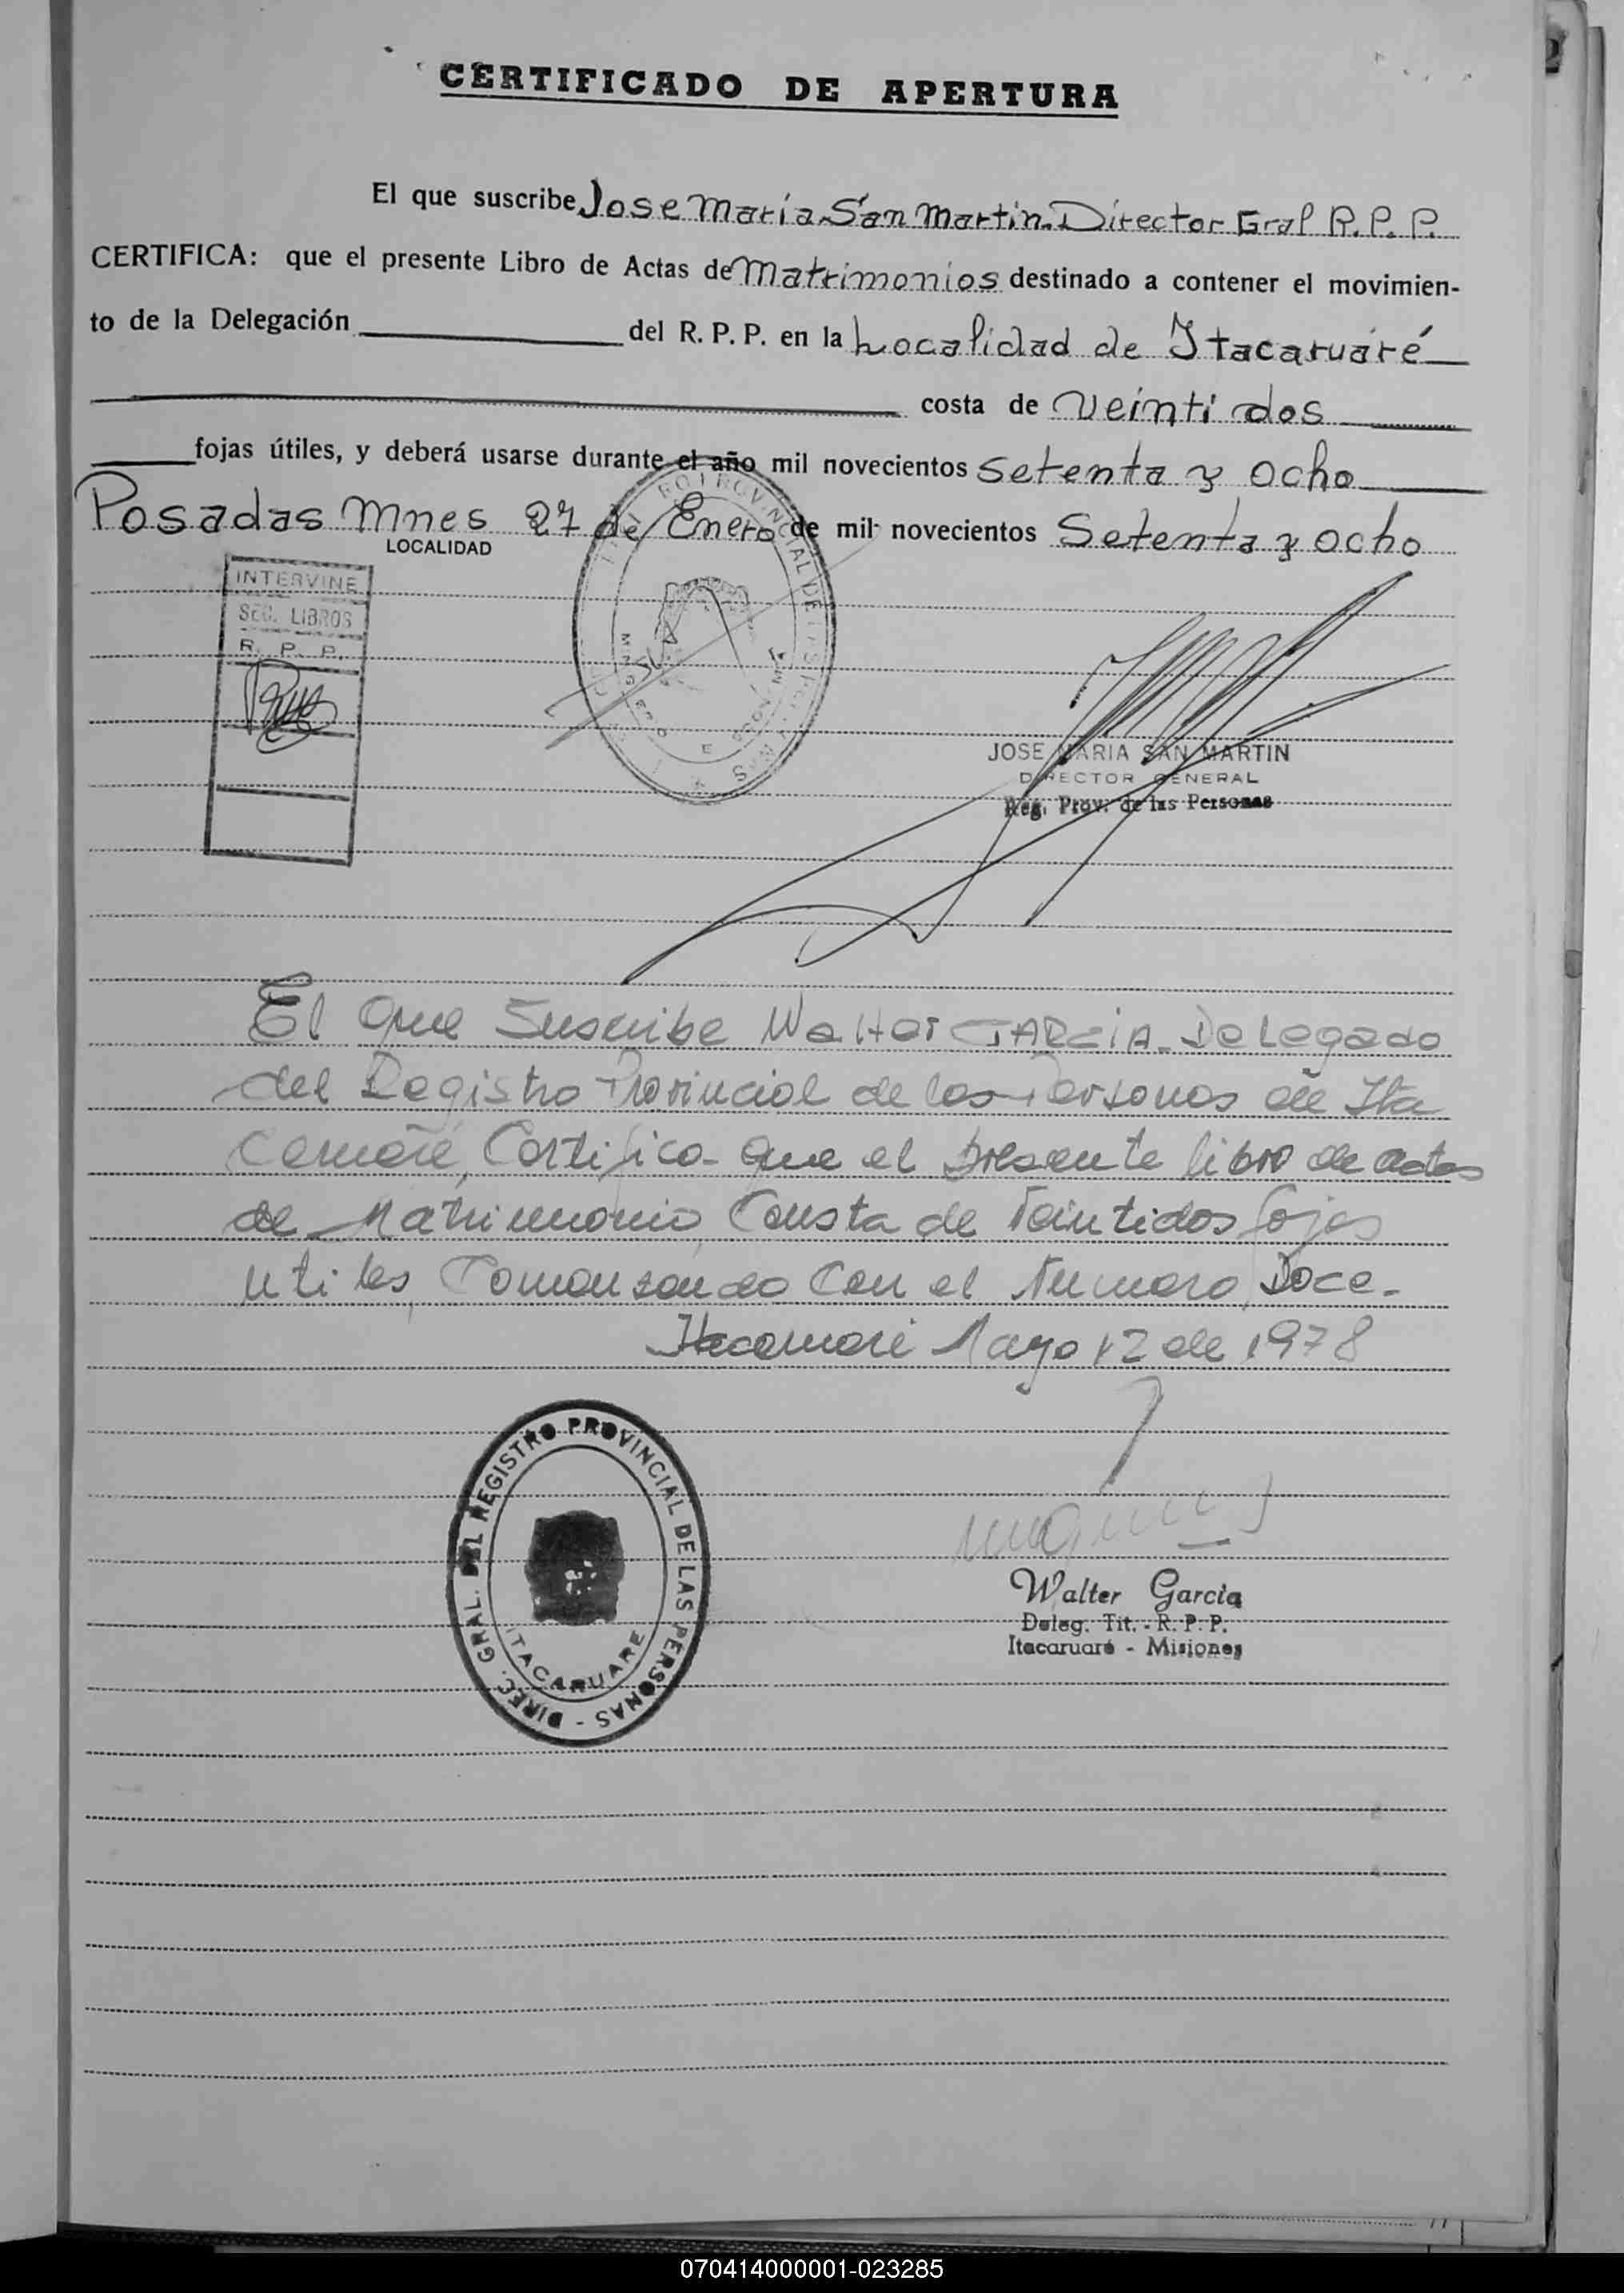 CERTIFICADO DE APERTURA
El que suscribe Jose Maria San Martin. Director Gral R. P. P.
CERTIFICA: que el presente Libro de Actas de Matrimonios destinado a contener el movimien-
to de la Delegación del R. P. P. en la Localidad de Itacaruaré
costa de Veinti dos
fojas útiles, y deberá usarse durante el año mil novecientos Setenta y ocho
Posadas Mnes 27 de Enero de mil novecientos Setenta y ocho
LOCALIDAD
INTERVINE
SEC. LIBROS
R. P. P.
JOSE MARIA SAN MARTIN
DIRECTOR GENERAL
Reg. Prov. de las Personas
El que Suscribe Walter GARCIA - Delegado
del Registro Provincial de las Personas de Ita
Caruaré, Certifica - que el presente libro de actas
de Matrimonio, Consta de Veintidos fojas
utiles, Comenzando Con el Numero, Doce -
Itacaruaré Mayo 12 de 1978
DIREC. GRAL. DEL REGISTRO PROVINCIAL DE LAS PERSONAS -
ITACARUARE
Walter Garcia
Deleg. Tit. - R. P. P.
Itacaruaré - Misiones
070414000001-023285